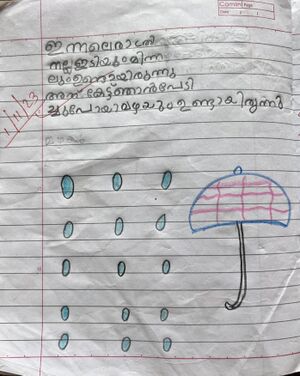 Camlin Page
Date / /
1/11/23
ഇന്നലെരാത്രി
നല്ല ഇടിയുംമിന്ന
ലുംഉണ്ടായിരുന്നു
അത് കേട്ട്ഞാൻപേടി
ച്ചുപോയിമഴയും ഉണ്ടായിരുന്നു